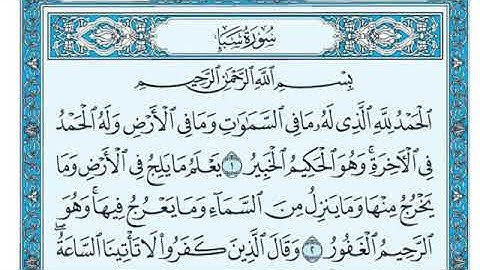 سُورَةُ سَبَإٍ
بِسْمِ ٱللَّهِ ٱلرَّحْمَٰنِ ٱلرَّحِيمِ
ٱلْحَمْدُ لِلَّهِ ٱلَّذِى لَهُۥ مَا فِى ٱلسَّمَٰوَٰتِ وَمَا فِى ٱلْأَرْضِ وَلَهُ ٱلْحَمْدُ
فِى ٱلْأَخِرَةِ ۚ وَهُوَ ٱلْحَكِيمُ ٱلْخَبِيرُ ١ يَعْلَمُ مَا يَلِجُ فِى ٱلْأَرْضِ وَمَا
يَخْرُجُ مِنْهَا وَمَا يَنزِلُ مِنَ ٱلسَّمَآءِ وَمَا يَعْرُجُ فِيهَا ۚ وَهُوَ
ٱلرَّحِيمُ ٱلْغَفُورُ ٢ وَقَالَ ٱلَّذِينَ كَفَرُوا۟ لَا تَأْتِينَا ٱلسَّاعَةُ ۖ